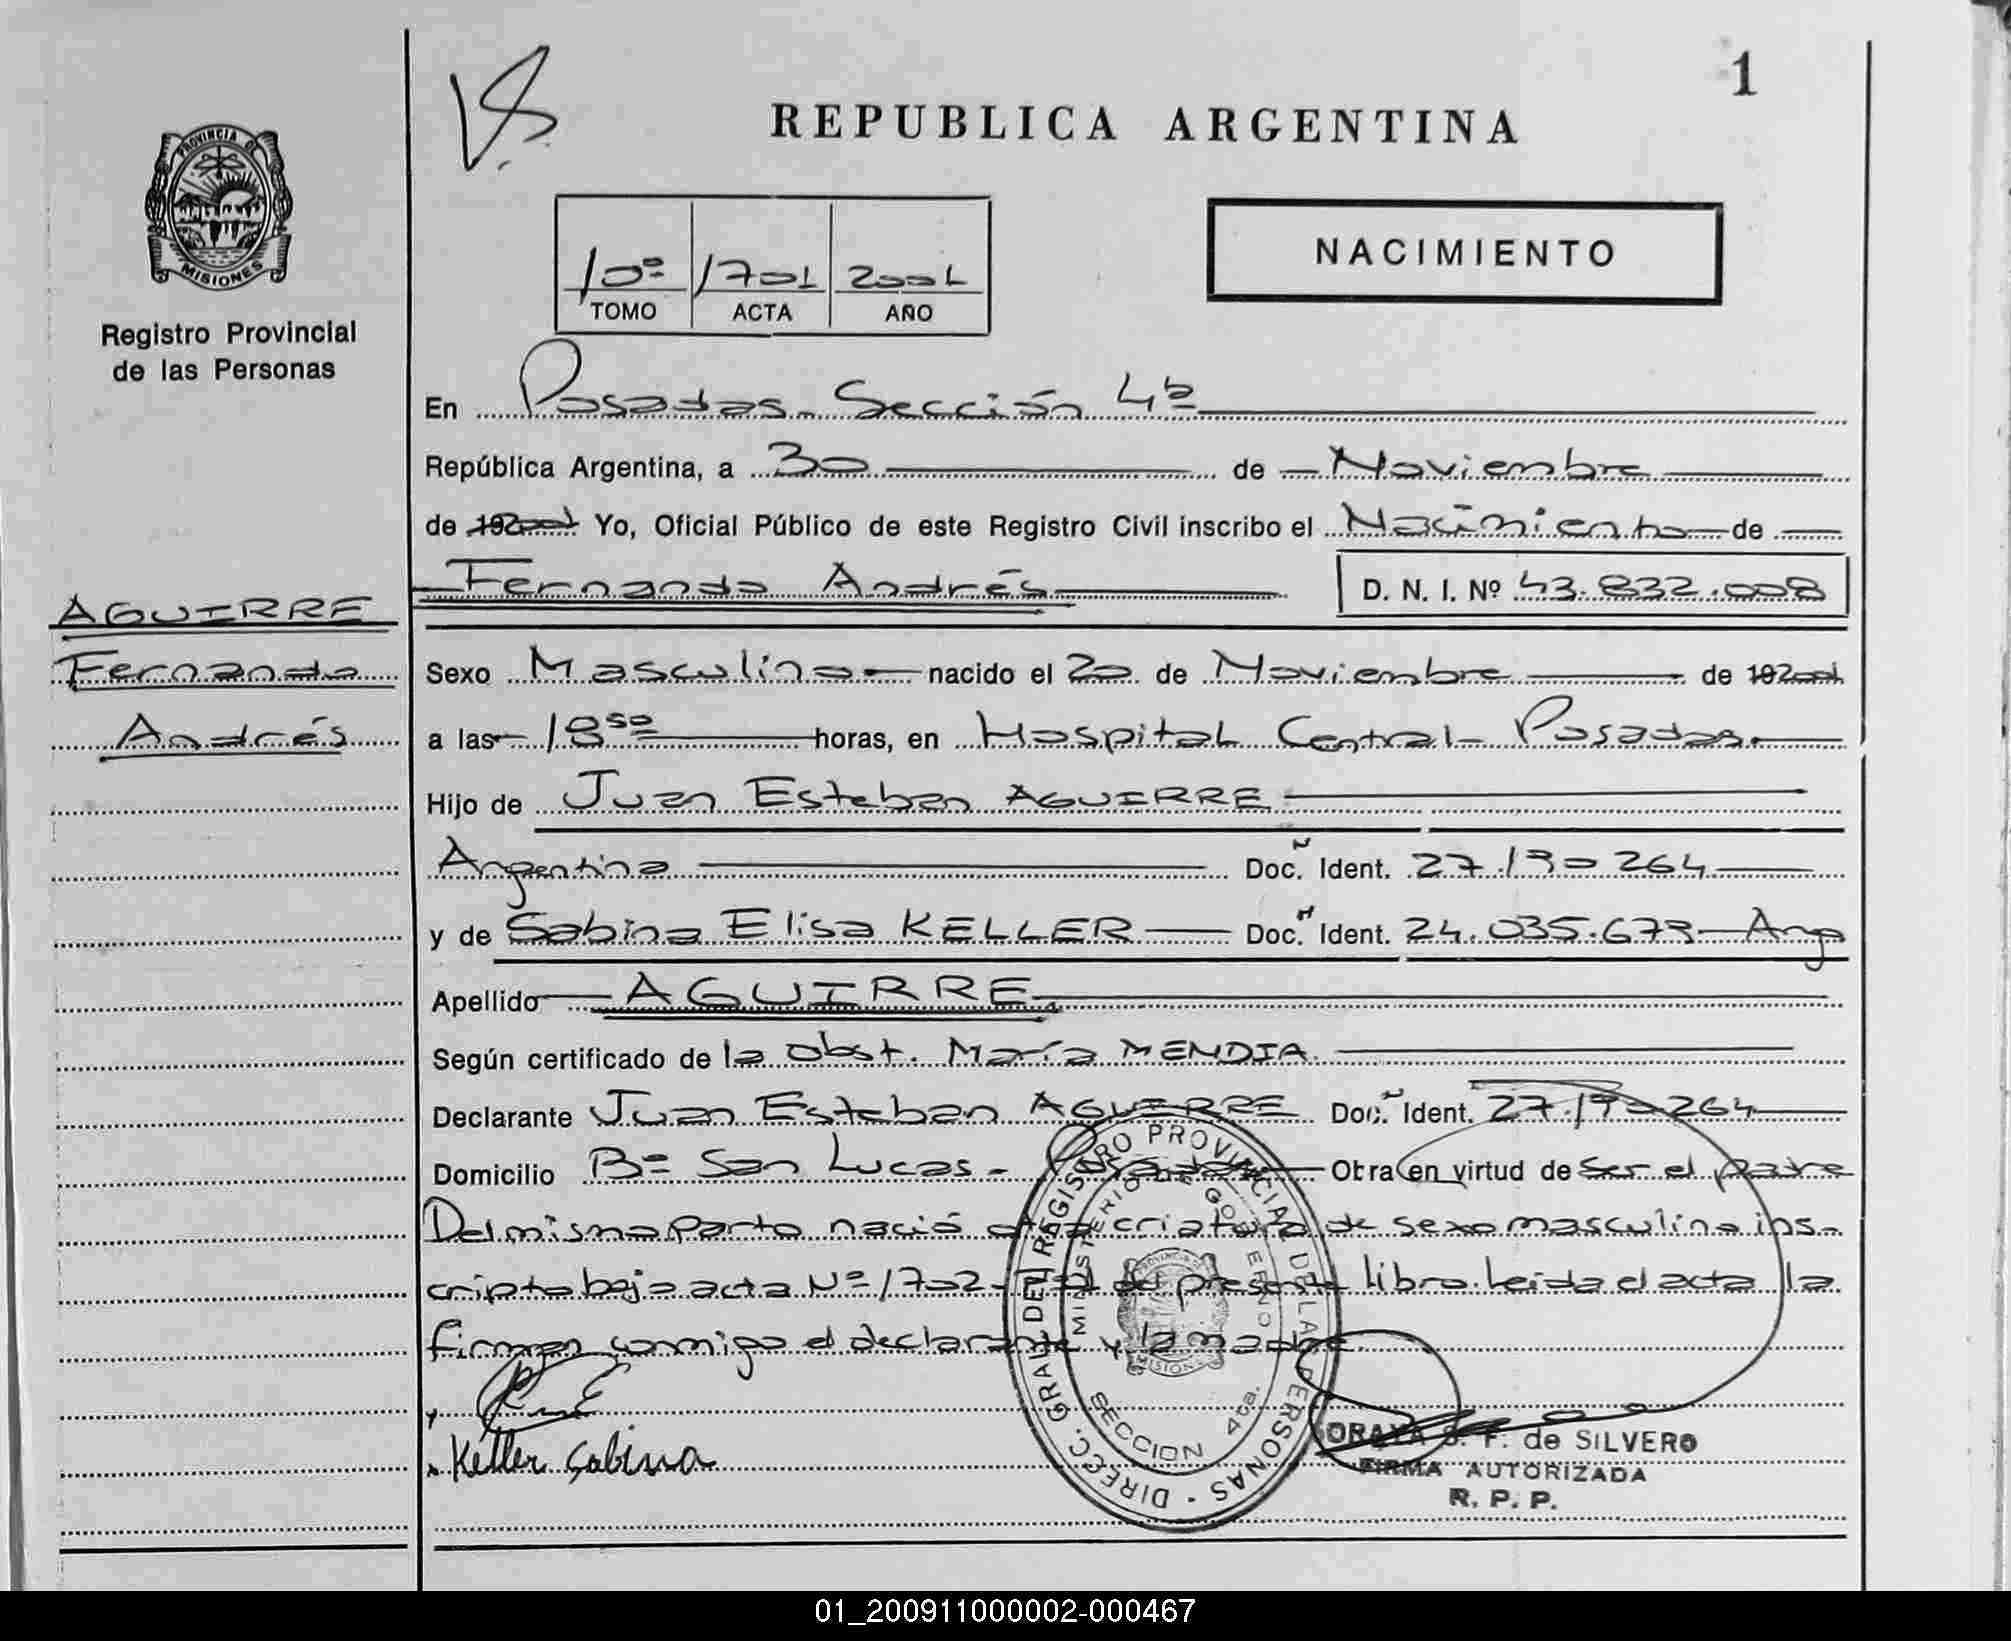 1
REPUBLICA ARGENTINA
PROVINCIA DE
MISIONES
Registro Provincial
de las Personas
10º 1701 2001
TOMO ACTA AÑO
NACIMIENTO
En Posadas. Sección 4ª
República Argentina, a 30 de Noviembre
de 2001 Yo, Oficial Público de este Registro Civil inscribo el Nacimiento de
Fernando Andrés D. N. I. Nº 43.832.008
AGUIRRE
Fernando
Andrés
Sexo Masculino nacido el 20 de Noviembre de 2001
a las 18⁵⁰ horas, en Hospital Central Posadas.
Hijo de Juan Esteban AGUIRRE
Argentino Doc. Ident. 27.190.264
y de Sabina Elisa KELLER Doc. Ident. 24.035.679 Arg
Apellido AGUIRRE
Según certificado de la Obst. María MENDIA
Declarante Juan Esteban AGUIRRE Doc. Ident. 27.190.264
Domicilio Bº San Lucas - Posadas Obra en virtud de ser el padre
Del mismo parto nació otra criatura de sexo masculino ins-
cripto bajo acta Nº 1702 del presente libro. Leida el acta la
firman conmigo el declarante y la madre.
Keller Sabina
DIREC. GRAL. DEL REGISTRO PROVINCIAL DE LAS PERSONAS
MINISTERIO DE GOBIERNO
MISIONES
SECCION 4ta.
SORAYA S. F. de SILVERO
FIRMA AUTORIZADA
R. P. P.
01_200911000002-000467